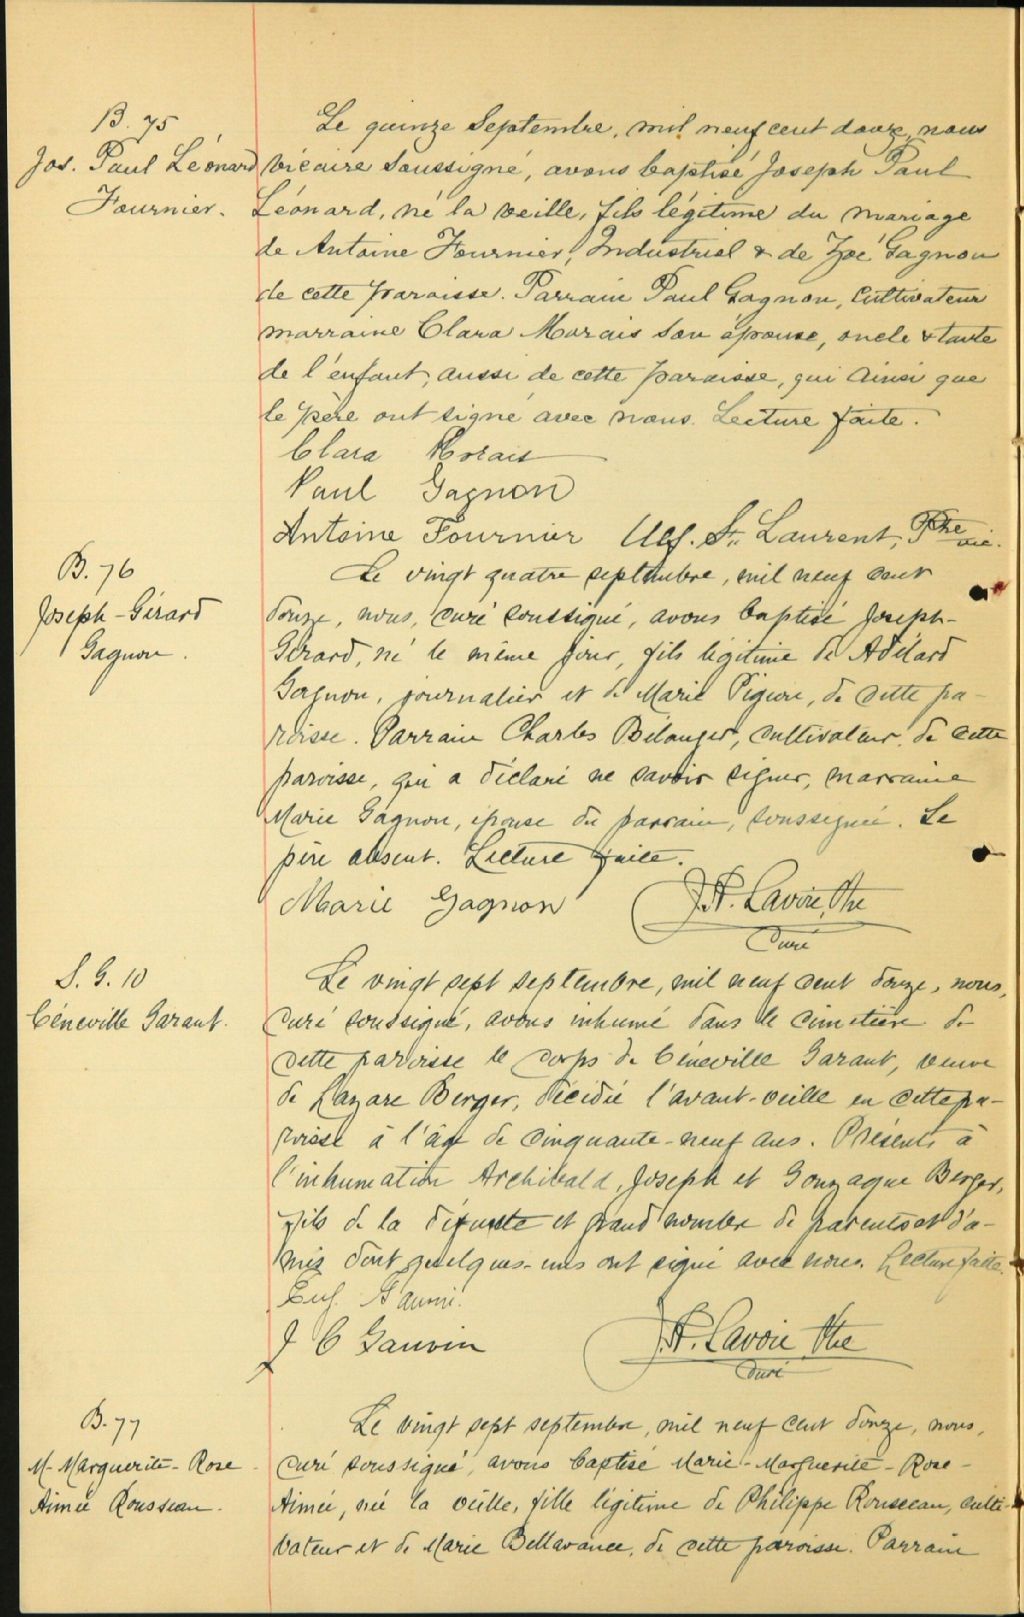 B. 75
Jos. Paul Léonard
Fournier.
Le quinze Septembre, mil neuf cent douze, nous
vicaire soussigné, avons baptisé Joseph Paul
Léonard, né la veille, fils légitime du mariage
de Antoine Fournier, Industriel & de Zoé Gagnon
de cette paroisse. Parrain Paul Gagnon, Cultivateur
marraine Clara Morais son épouse, oncle & tante
de l'enfant, aussi de cette paroisse, qui ainsi que
le père ont signé avec nous. Lecture faite.
Clara Morais
Paul Gagnon
Antoine Fournier St. Laurent, Ptre vic.
B. 76
Joseph-Gérard
Gagnon.
Le vingt quatre septembre, mil neuf cent
douze, nous, curé soussigné, avons baptisé Joseph-
Gérard, né le même jour, fils légitime de Adélard
Gagnon, journalier et de Marie Pigeon, de cette pa-
roisse. Parrain Charles Bélanger, cultivateur, de cette
paroisse, qui a déclaré ne savoir signer, marraine
Marie Gagnon, épouse du parrain, soussignée. Le
père absent. Lecture faite.
Marie Gagnon J.A. Lavoie, Ptre
Curé
S. G. 10
Céneville Garant.
Le vingt sept septembre, mil neuf cent douze, nous,
curé soussigné, avons inhumé dans le cimetière de
cette paroisse le corps de Céneville Garant, veuve
de Lazare Berger, décédée l'avant-veille en cette pa-
roisse à l'âge de cinquante-neuf ans. Présents à
l'inhumation Archibald, Joseph et Gonzague Berger,
fils de la défunte et grand nombre de parents et d'a-
mis dont quelques-uns ont signé avec nous. Lecture faite.
J C Gauvin J.A. Lavoie Ptre
Curé
B. 77
M-Marguerite-Rose
Aimée Rousseau.
Le vingt sept septembre, mil neuf cent douze, nous,
curé soussigné, avons baptisé Marie-Marguerite-Rose-
Aimée, née la veille, fille légitime de Philippe Rousseau, culti-
vateur et de Marie Bellavance, de cette paroisse. Parrain